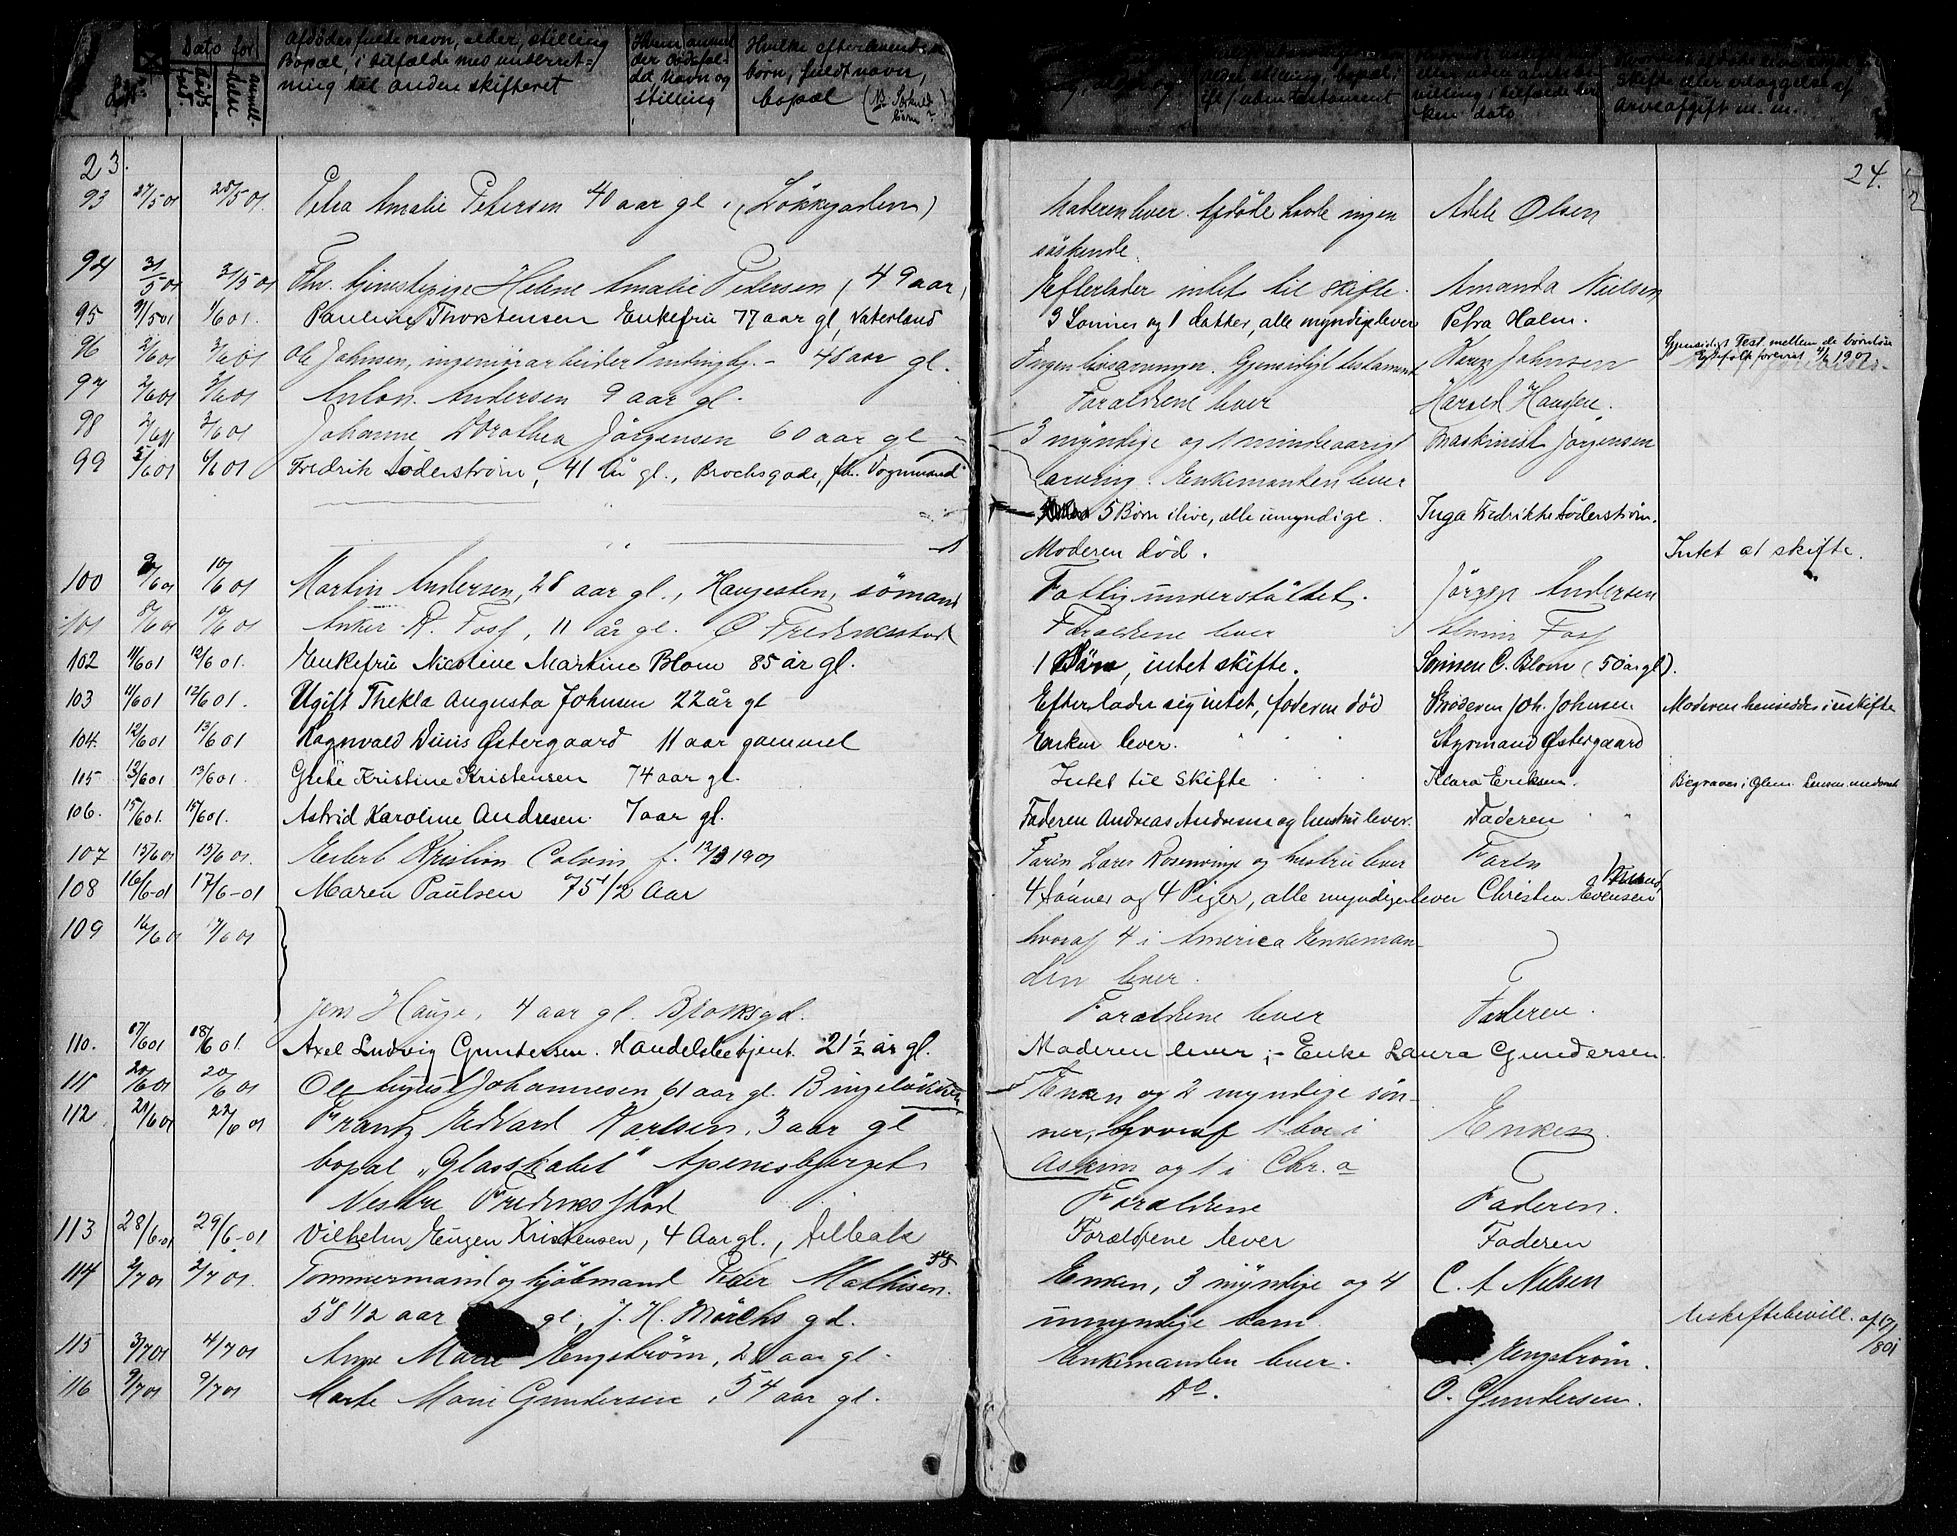 Dato for
Afdødes fulde navn, alder, stilling
Bopæl, i tilfælde med underret-
ning til anden skifteret
Hvem anmel
der dødsfal-
det, Navn og
stilling
Hvilke efterlevende
børn, fuldt navn,
bopæl
23.
93 27/5 01 28/5 01. Petra Amalie Petersen 40 aar gl. (Løkkegaden)
94 31/5 01 31/5 01 Fhv. tjenestepige Helene Amalie Pedersen (49 aar)
95 31/5 01 1/6 01. Pauline Thorstensen Enkefru 77 aar gl, Vaterland
96 2/6 01 3/6 01 Ole Johnsen, ingeniørarbeider - 48 aar gl.
97 2/6 01 3/6 01 Anton Andersen 9 aar gl.
98 2/6 01 3/6 01 Johanne Dorothea Jørgensen 60 aar gl
99 5/6 01 6/6 01 Fredrik Söderstrøm, 41 år gl., Brochsgade, fh. Vognmand
100 9/6 01 10/6 01 Martin Andersen, 28 aar gl., Haugesten, sømand
101 8/6 01 10/6 01 Anker R. Foss, 11 år gl. Ø Fredriksstad
102 11/6 01 12/6 01. Enkefru Nicoline Martine Blom 85 år gl.
103 11/6 01 12/6 01. Ugift Thekla Augusta Johnsen 22 år gl
104. 12/6 01 13/6 01 Ragnvald Duus Østergaard 11 aar gammel
105 13/6 01 13/6 01 Grete Kristine Kristensen 74 aar gl.
106. 15/6 01. 15/6 01. Astrid Karoline Andresen 7 aar gl.
107 15/6 01 15/6 01. Kristian Colvin f. 12/3 1901
108 16/6-01 17/6-01 Maren Paulsen 75 1/2 Aar
109 16/6 01 17/6 01
Jens Hauge, 4 aar gl. Brocksgd.
110. 17/6 01 18/6 01. Axel Ludvig Gundersen. Handelsbetjent. 21 1/2 år gl.
111 20/6 01 20/6 01 Ole August Johannesen 61 aar gl.
112 21/6 01 22/6 01 Frantz Edvard Karlsen, 3 aar gl
bopæl "Glasskabet" Apenesbjerget
Vestre Fredriksstad
113 28/6-01 29/6-01 Vilhelm Eugen Kristensen, 4 Aar gl.,
114 2/7 01 2/7 01. Tømmermand og kjøbmand Peder Mathisen.
58 1/2 aar gl, J. H. Mørchs gd.
115 3/7 01 4/7 01 Anne Marie Engstrøm, 28 aar gl.
116 9/7 01 9/7 01 Marte Marie Gundersen, 54 aar gl.
24.
Moderen lever. Afdøde havde ingen Adele Olsen
søskende.
Efterlader intet til skifte. Amanda Nielsen
3 Sønner og 1 datter, alle myndige lever Petra Holm.
Ingen livsarvinger. Gjensidigt testament Johnsen Gjensidigt Test. mellem de barnløse Ægtefolk forevist 1901
Forældrene lever Harald Hansen.
3 myndige og 1 mindreaarigt Maskinist Jørgensen
arving. Enkemanden lever
5 Børn ilive, alle umyndige. Inga Fredrikke Söderstrøm.
Moderen død. Intet at skifte.
Fattigunderstøttet. Jørgen Andersen
Forældrene lever Foss
1 Søn, intet skifte. Sønnen C. Blom (50 år gl).
Efterlader sig intet, faderen død Broderen Joh. Johnsen Moderen hensidder i uskifte
Enken lever. Styrmand Østergaard
Intet til skifte Klara Eriksen. Begraves i Glem.
Faderen Andreas Andresen og hustru lever. Faderen
Faren Lars Rosenvinge og hustru lever Faren
4 Sønner og 4 Piger, alle myndige lever Christen Evensen
hvoraf 4 i America Enkeman-
den lever.
Forældrene lever Faderen.
Moderen lever;- Enke Laura Gundersen.
Enken og 2 myndige søn-
ner, hvoraf 1 bor i Enken.
Askim og 1 i Chr.a
Forældrene Faderen.
Forældrene lever Faderen
Enken, 3 myndige og 4 C. A Nilsen
umyndige barn. Uskiftebevill. af
Enkemanden lever. Engstrøm.
Do. O. Gundersen.